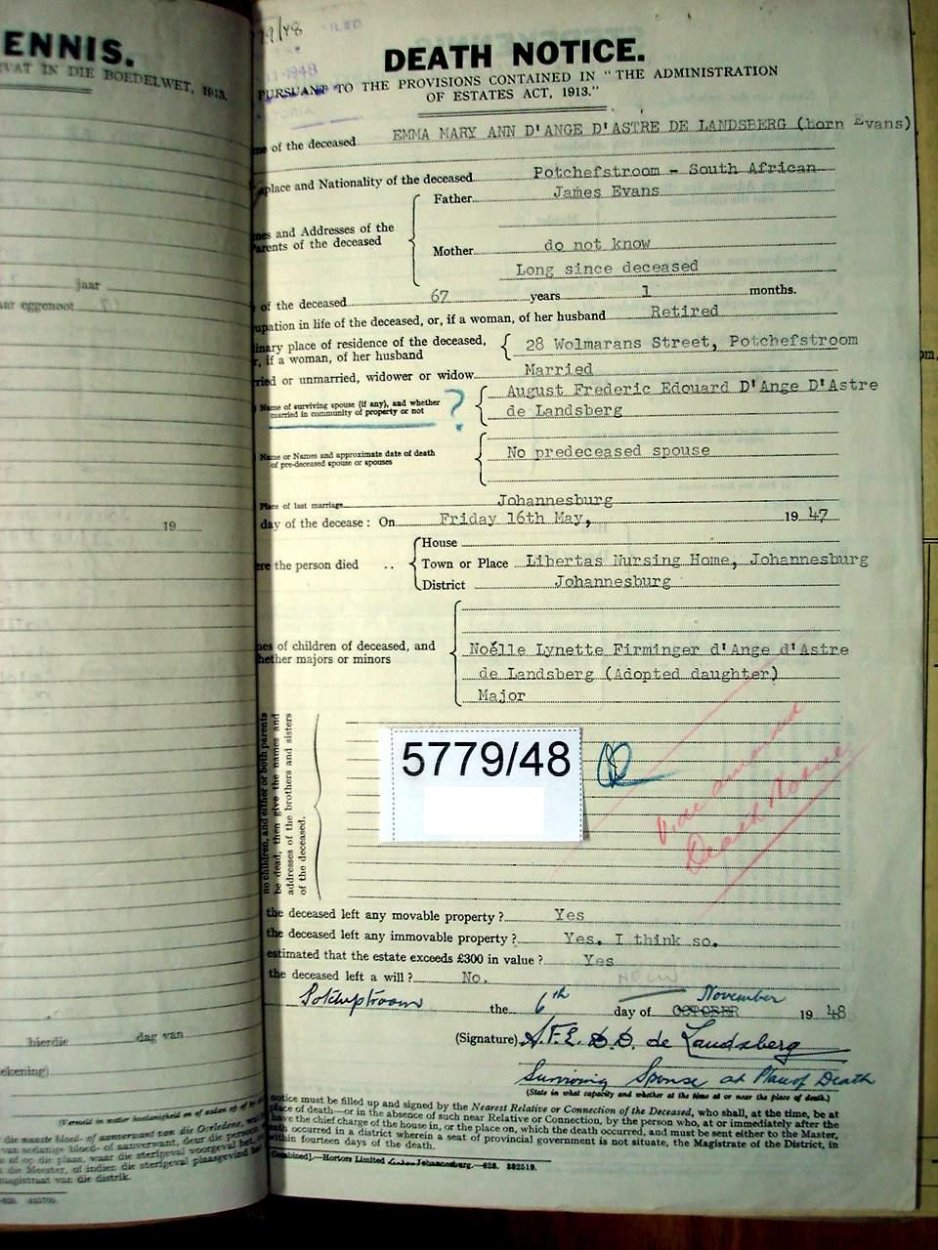 ENNIS.
VAT IN DIE BOEDELWET, 1913.
jaar
eggenoot
19
hierdie dag van
ekening)
magistraat van die distrik.
1948
DEATH NOTICE.
PURSUANT TO THE PROVISIONS CONTAINED IN "THE ADMINISTRATION
OF ESTATES ACT, 1913."
me of the deceased EMMA MARY ANN D'ANGE D'ASTRE DE LANDSBERG (born Evans)
place and Nationality of the deceased Potchefstroom - South African
Father James Evans
mes and Addresses of the
Parents of the deceased
Mother do not know
Long since deceased
of the deceased 67 years 1 months.
upation in life of the deceased, or, if a woman, of her husband Retired
inary place of residence of the deceased, 28 Wolmarans Street, Potchefstroom
r, if a woman, of her husband
ried or unmarried, widower or widow Married
Name of surviving spouse (if any), and whether
married in community of property or not ?
August Frederic Edouard D'Ange D'Astre
de Landsberg
Name or Names and approximate date of death
of pre-deceased spouse or spouses
No predeceased spouse
Place of last marriage Johannesburg
day of the decease: On Friday 16th May, 1947
House
ere the person died .. Town or Place Libertas Nursing Home, Johannesburg
District Johannesburg
mes of children of deceased, and
hether majors or minors
Noëlle Lynette Firminger d'Ange d'Astre
de Landsberg (Adopted daughter)
Major
no children, and either or both parents
be dead, then give the names and
addresses of the brothers and sisters
of the deceased.
5779/48
Death Notice
the deceased left any movable property? Yes
the deceased left any immovable property? Yes. I think so.
estimated that the estate exceeds £300 in value? Yes
the deceased left a will? No.
Potchefstroom the 6th day of OCTOBER November 1948
(Signature) A.F.E. D.D. de Landsberg
Surviving Spouse at Place of Death
(State in what capacity and whether at the time at or near the place of death.)
notice must be filled up and signed by the Nearest Relative or Connection of the Deceased, who shall, at the time, be at
place of death—or in the absence of such near Relative or Connection, by the person who, at or immediately after the
have the chief charge of the house in, or the place on, which the death occurred, and must be sent either to the Master,
ath occurred in a district wherein a seat of provincial government is not situate, the Magistrate of the District, in
within fourteen days of the death.
Combined].—Hortors Limited Johannesburg.—628. 332519.